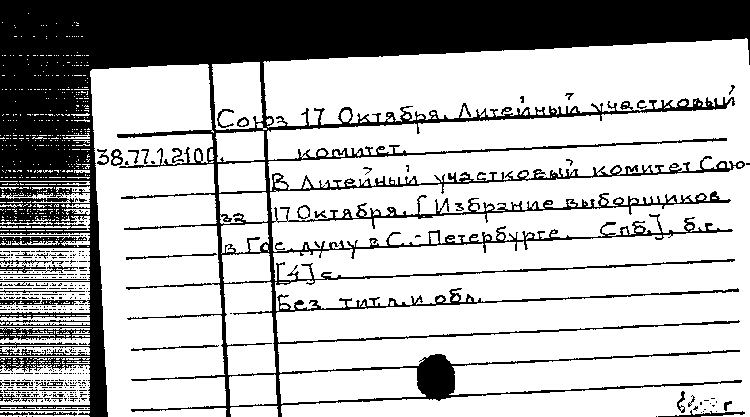 Союз 17 Октября. Литейный участковый
38.77.1.210 комитет.
В Литейный участковый комитет Сою-
за 17 Октября. [Избрание выборщиков
в Гос. думу в С.-Петербурге. Спб.], б.г.
[4] с.
Без тит.л. и обл.